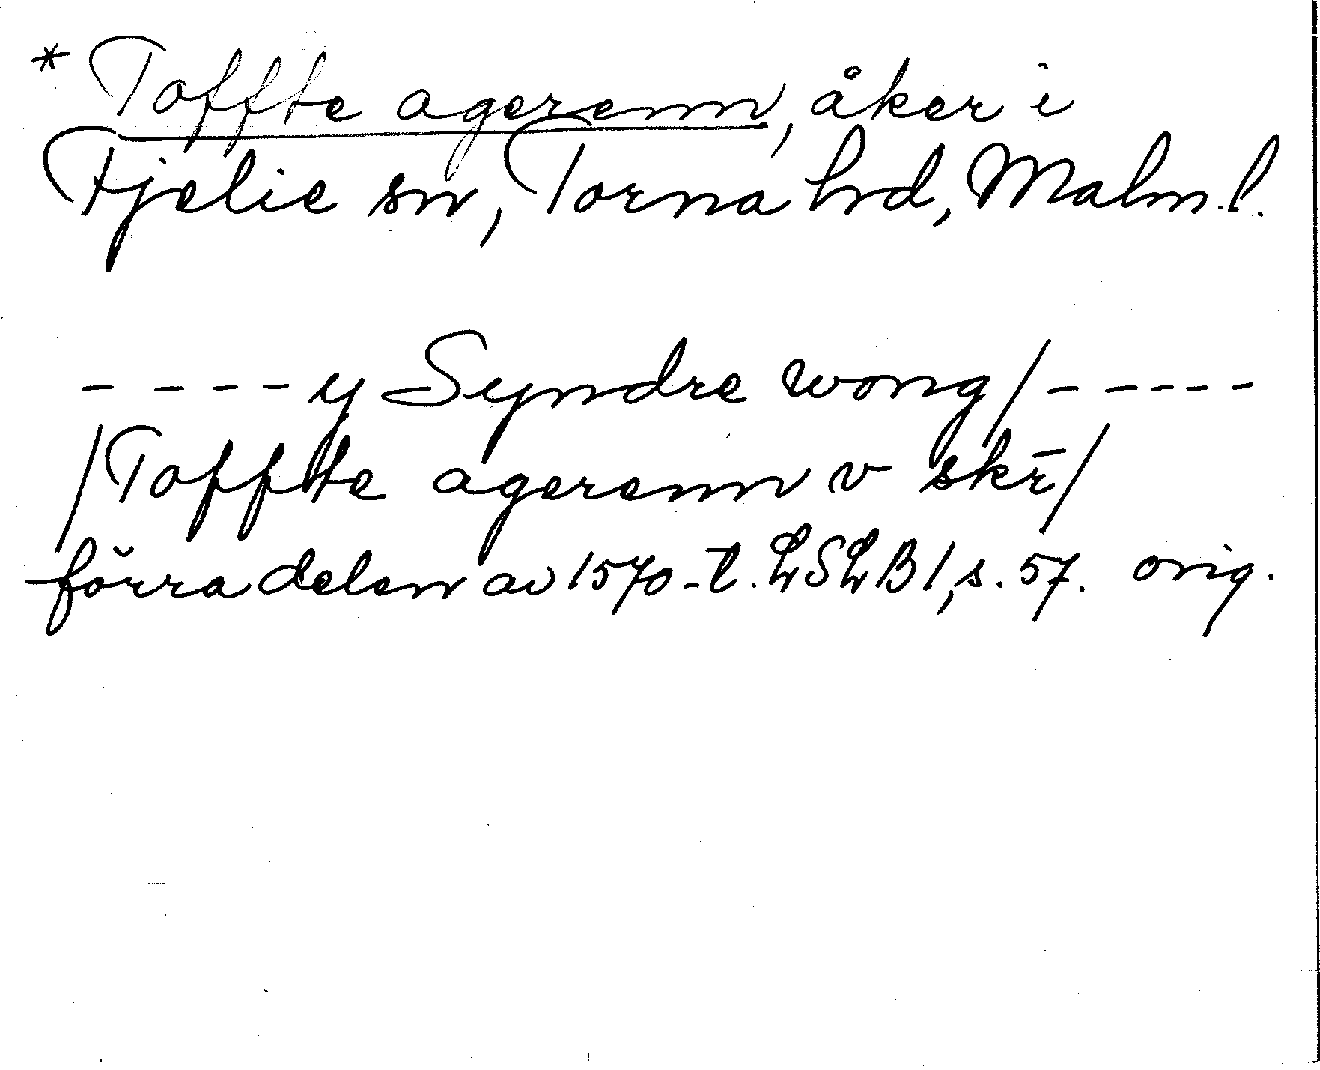 * Toffte agerenn, åker i
Fjelie sn, Torna hd, Malm.l.
- - - - y Syndre wong / - - - - -
/ Toffte agerenn v skr̄ /
förra delen av 1570-t. LSLB 1, s. 57. orig.